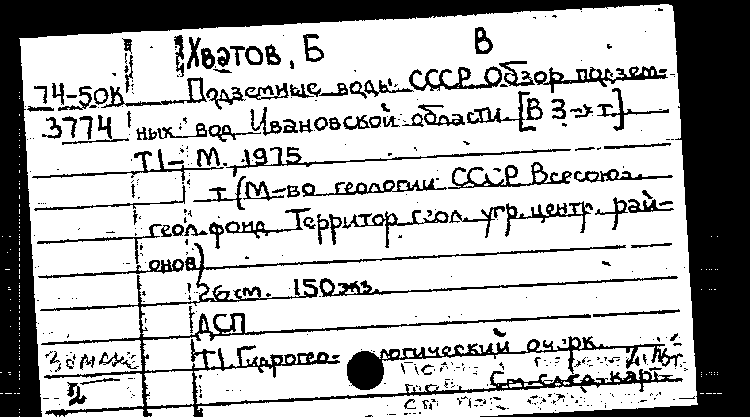 Хватов, Б В
74-50к Подземные воды СССР Обзор подзем-
3774 ных вод Ивановской области. [В 3-х т].
Т1- М., 1975.
т (М-во геологии СССР Всесоюз.
геол. фонд Территор геол. упр. центр. рай-
онов)
26 см. 150 экз.
ДСП
Т.1. Гидрогео- логический очерк.
См. след. карт.